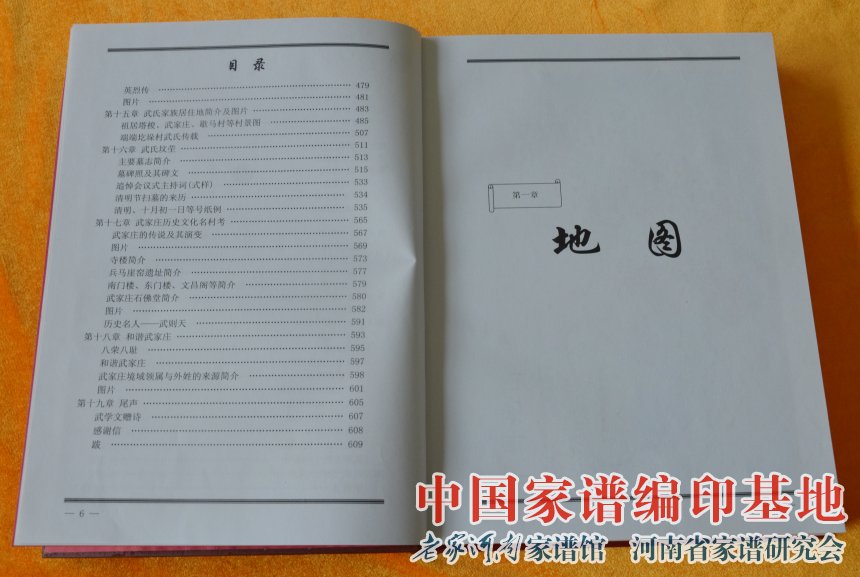 目 录
英烈传 ⋯⋯ 479
图片 ⋯⋯ 481
第十五章 武氏家族居住地简介及图片 ⋯⋯ 483
祖居塔梭、武家庄、歇马村等村景图 ⋯⋯ 485
端端圪垛村武氏传载 ⋯⋯ 507
第十六章 武氏坟茔 ⋯⋯ 511
主要墓志简介 ⋯⋯ 513
墓碑照及其碑文 ⋯⋯ 515
追悼会议式主持词(式样) ⋯⋯ 533
清明节扫墓的来历 ⋯⋯ 534
清明、十月初一日等号纸例 ⋯⋯ 535
第十七章 武家庄历史文化名村考 ⋯⋯ 565
武家庄的传说及其演变 ⋯⋯ 567
图片 ⋯⋯ 569
寺楼简介 ⋯⋯ 573
兵马崖窑遗址简介 ⋯⋯ 577
南门楼、东门楼、文昌阁等简介 ⋯⋯ 579
武家庄石佛堂简介 ⋯⋯ 580
图片 ⋯⋯ 582
历史名人——武则天 ⋯⋯ 591
第十八章 和谐武家庄 ⋯⋯ 593
八荣八耻 ⋯⋯ 595
和谐武家庄 ⋯⋯ 597
武家庄境域领属与外姓的来源简介 ⋯⋯ 598
图片 ⋯⋯ 601
第十九章 尾声 ⋯⋯ 605
武学文赠诗 ⋯⋯ 607
感谢信 ⋯⋯ 608
跋 ⋯⋯ 609
— 6 —
第一章
地 图
中国家谱编印基地
老家河南家谱馆 河南省家谱研究会